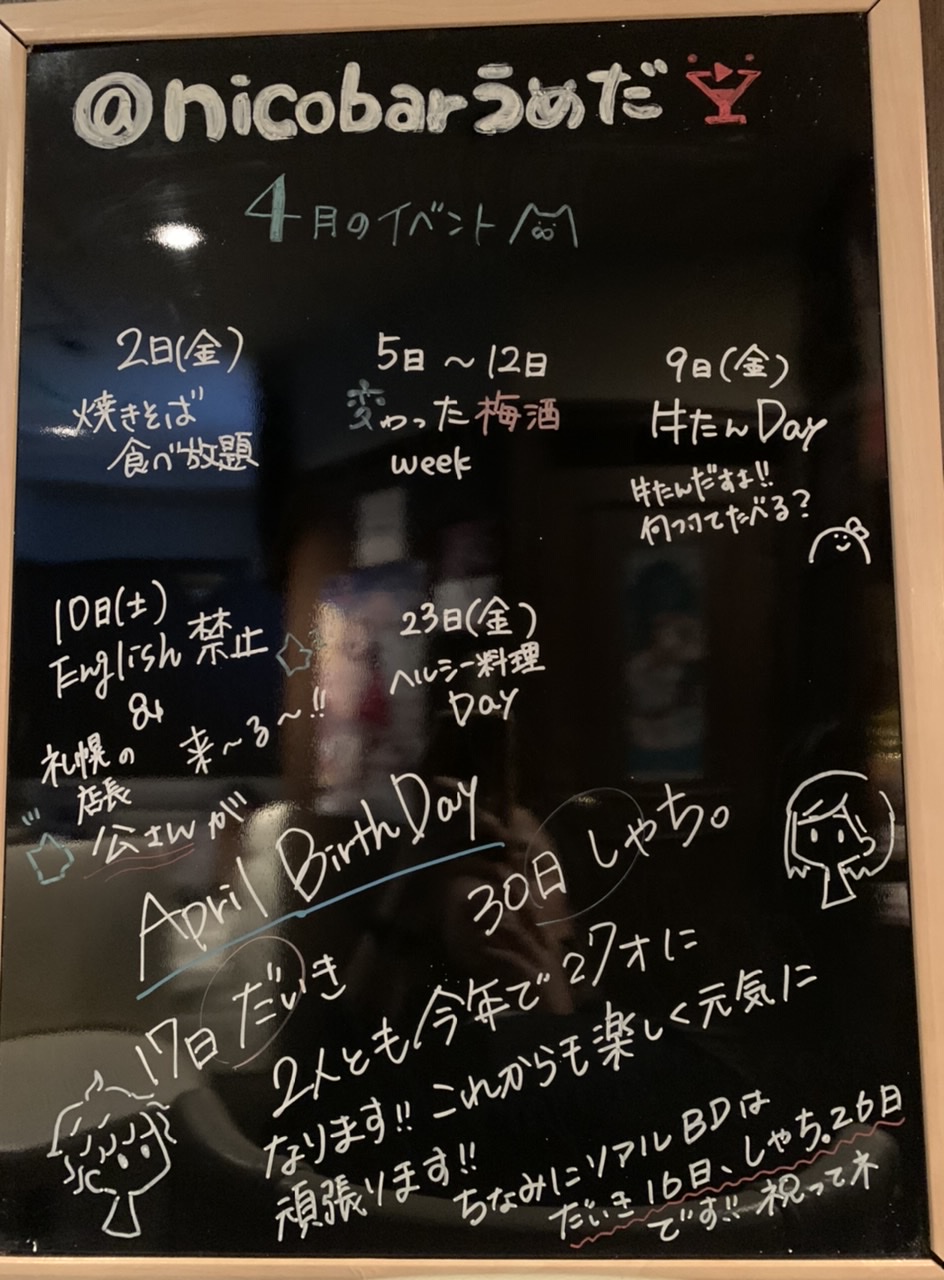 @nicobarうめだ
4月のイベント
2日(金)
焼きそば
食べ放題
5日~12日
変わった梅酒
week
9日(金)
牛たんDay
牛たんだすよ!!
何つけてたべる?
10日(土)
English禁止
&
札幌の
店長
公さんが
来~る~!!
23日(金)
ヘルシー料理
Day
April BirthDay
17日だいき
30日しゃち。
2人とも今年で27才に
なります!!これからも楽しく元気に
頑張ります!!
ちなみにリアルBDは
だいき16日、しゃち。26日
です!!祝ってネ